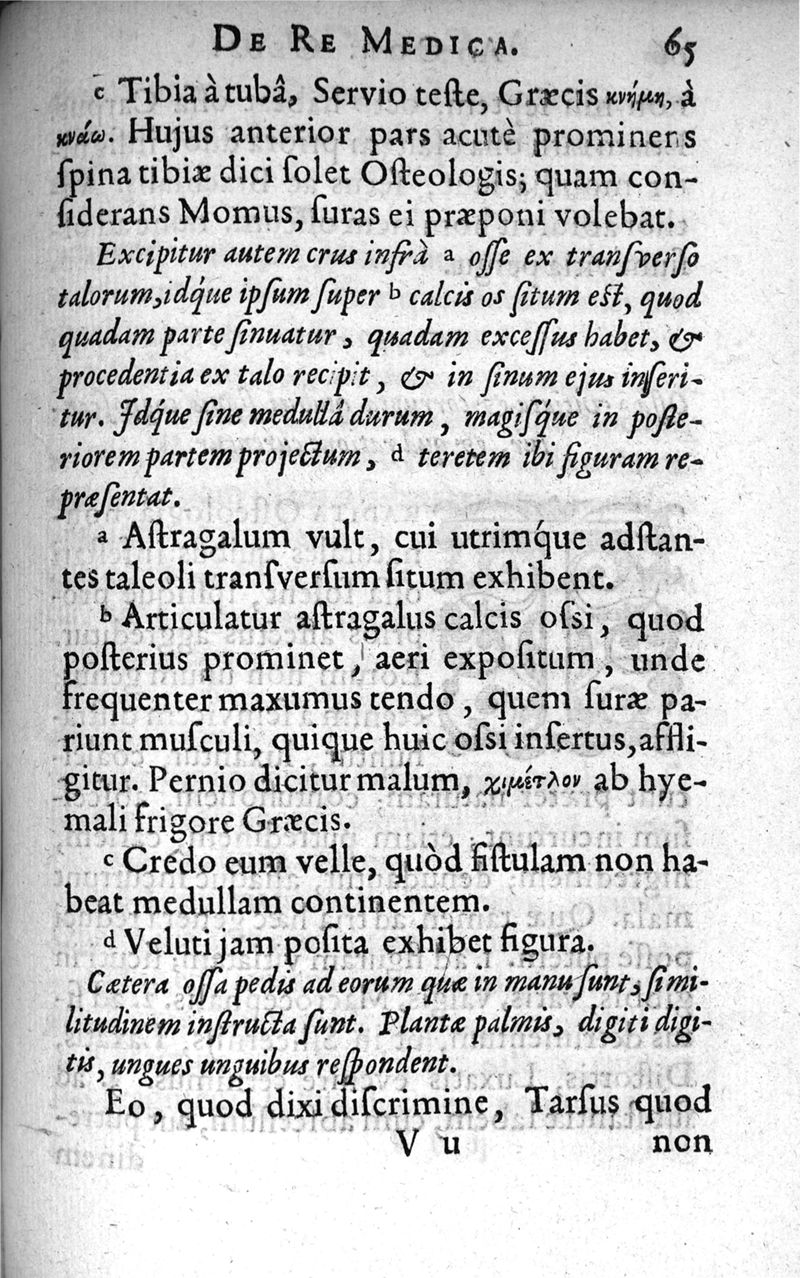 DE RE MEDICA. 65
c Tibia à tubâ, Servio teſte, Græcis κνήμη, à
κνάω. Hujus anterior pars acutè prominens
ſpina tibiæ dici ſolet Oſteologis; quam con-
ſiderans Momus, ſuras ei præponi volebat.
Excipitur autem crus infrà a oſſe ex tranſverſo
talorum, idq́ue ipſum ſuper b calcis os ſitum eſt, quod
quadam parte ſinuatur, quadam exceſſus habet, &
procedentia ex talo recipit, & in ſinum ejus inſeri-
tur. Idq́ue ſine medullâ durum, magiſq́ue in poſte-
riorem partem projectum, d teretem ibi figuram re-
præſentat.
a Aſtragalum vult, cui utrimq́ue adſtan-
tes taleoli tranſverſum ſitum exhibent.
b Articulatur aſtragalus calcis oſsi, quod
poſterius prominet, aeri expoſitum, unde
frequenter maxumus tendo, quem ſuræ pa-
riunt muſculi, quique huic oſsi inſertus, affli-
gitur. Pernio dicitur malum, χιμέτλον ab hye-
mali frigore Græcis.
c Credo eum velle, quòd fiſtulam non ha-
beat medullam continentem.
d Veluti jam poſita exhibet figura.
Cætera oſſa pedis ad eorum quæ in manu ſunt, ſimi-
litudinem inſtructa ſunt. Plantæ palmis, digiti digi-
tis, ungues unguibus reſpondent.
Eo, quod dixi diſcrimine, Tarſus quod
V u non